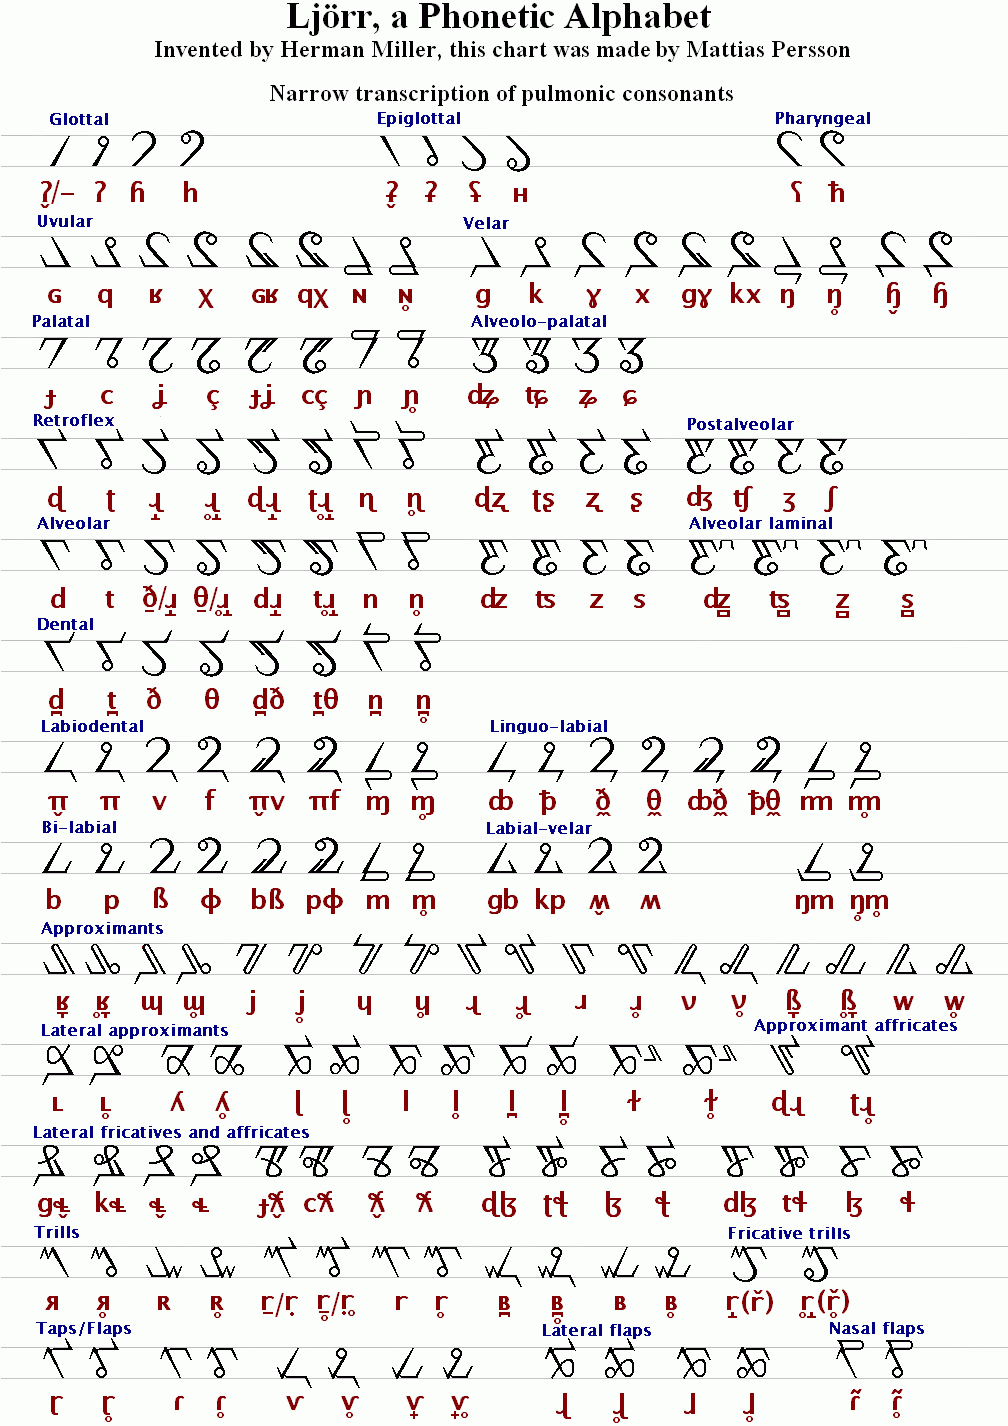 Ljörr, a Phonetic Alphabet
Invented by Herman Miller, this chart was made by Mattias Persson
Narrow transcription of pulmonic consonants
Glottal Epiglottal Pharyngeal
ʔ̬/– ʔ ɦ h ʡ̬ ʡ ʢ ʜ ʕ ħ
Uvular Velar
ɢ q ʁ χ ɢʁ qχ ɴ ɴ̥ g k ɣ x gɣ kx ŋ ŋ̥ ɧ̬ ɧ
Palatal Alveolo-palatal
ɟ c ʝ ç ɟʝ cç ɲ ɲ̥ ʥ ʨ ʑ ɕ
Retroflex Postalveolar
ɖ ʈ ɻ̝ ɻ̝̊ ɖɻ̝ ʈɻ̝̊ ɳ ɳ̥ ɖʐ ʈʂ ʐ ʂ ʤ ʧ ʒ ʃ
Alveolar Alveolar laminal
d t ð̠/ɹ̝ θ̠/ɹ̝̊ dɹ̝ tɹ̝̊ n n̥ ʣ ʦ z s ʣ̻ ʦ̻ z̻ s̻
Dental
d̪ t̪ ð θ d̪ð t̪θ n̪ n̪̊
Labiodental Linguo-labial
π̬ π v f π̬v πf ɱ ɱ̥ ȸ ƀ ð̼ θ̼
Bi-labial Labial-velar
b p ß ɸ bß pɸ m m̥ gb kp ʍ̬ ʍ ŋm ŋ̥m̥
Approximants
ʁ̞ ʁ̞̊ ɰ ɰ̥ j j̥ ɥ ɥ̥ ɻ ɻ̥ ɹ ɹ̥ ʋ ʋ̥ ß̞ ß̞̊ w w̥
Lateral approximants Approximant affricates
ʟ ʟ̥ ʎ ʎ̥ ɭ ɭ̥ l l̥ l̪ l̪̊ ɫ ɫ̥ ɖɻ ʈɻ̥
Lateral fricatives and affricates
Trills Fricative trills
я я̥ ʀ ʀ̥ r̠/ṛ r̠̊/ṛ̥ r r̥ ʙ̪ ʙ̪̊ ʙ ʙ̥ r̝(ř) r̝̊(ř̥)
Taps/Flaps Lateral flaps Nasal flaps